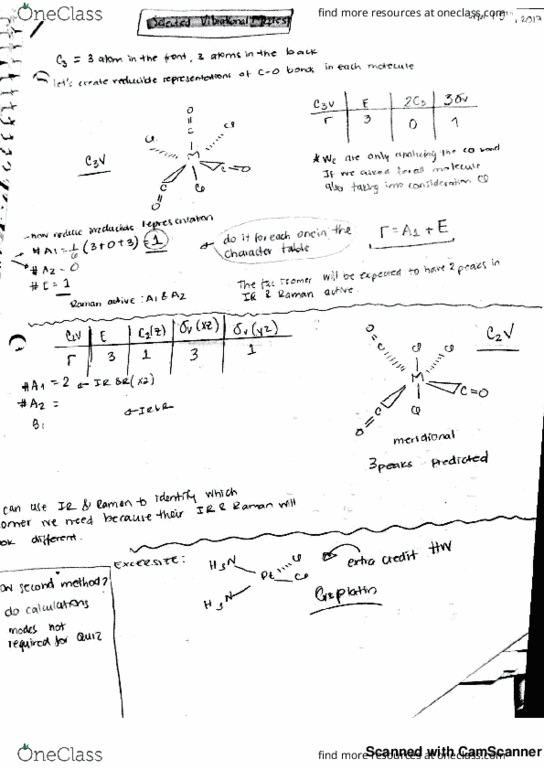 OneClass
find more resources at oneclass.com
, 2017
Selected Vibrational Modes
C3 = 3 atom in the front, 3 atoms in the back
let's create reducible representations of C-O bonds in each molecule
C3V | E | 2C3 | 3σv
Γ | 3 | 0 | 1
O
C
Cl
Cl
M
C=O
C
O
Cl
C3V
* We are only analyzing the CO bond
If we asked total molecule
also taking into consideration Cl
now reduce irreducible representation
#A1 = 1/6 (3+0+3) = 1
#A2 = 0
#E = 1
do it for each one in the
character table
Γ = A1 + E
Raman active: A1 & A2
The fac isomer will be expected to have 2 peaks in
IR & Raman active.
C2V | E | C2(z) | σv(xz) | σv(yz)
Γ | 3 | 1 | 3 | 1
#A1 = 2 ← IR &R (x2)
#A2 =
B1
← IR & R
C2V
O
C
Cl
Cl
M
C=O
C
O
Cl
meridional
3 peaks predicted
can use IR & Raman to identify which
omer we need because their IR & Raman will
ok different.
EXCERSISE:
H3N
Cl
Pt
Cl
H3N
extra credit HW
Cisplatin
ow second method?
do calculations
modes not
required for QUIZ
OneClass
find more resources at oneclass.com
Scanned with CamScanner